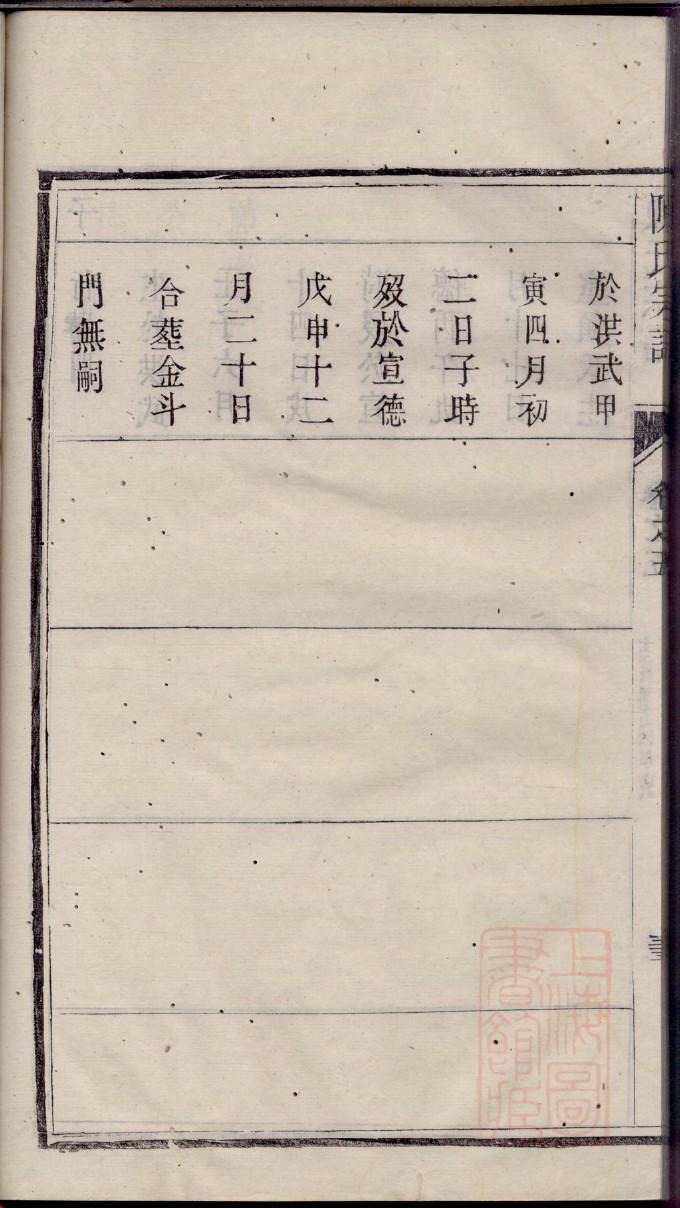 於洪武甲
寅四月初
二日子時
歿於宣德
戊申十二
月二十日
合塟金斗
門無嗣
陳氏宗譜
卷之五
上海圖
書館藏